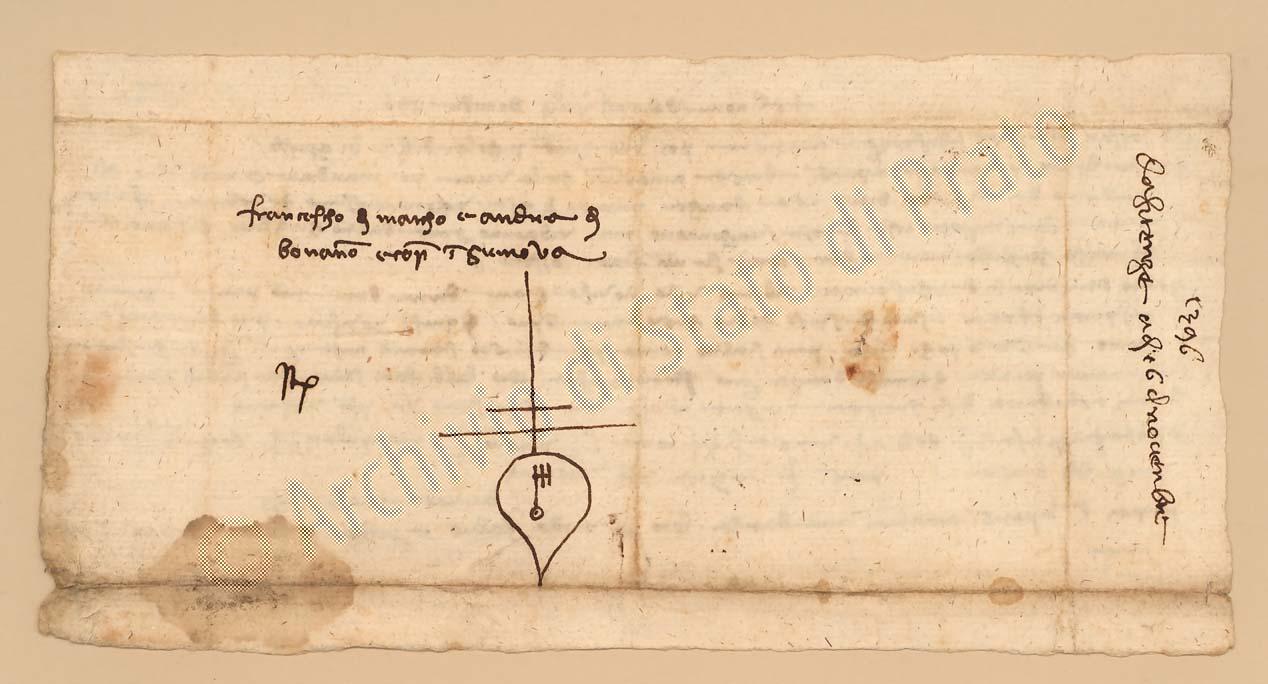 francescho di marcho e andrea di
bonano e conp in genova
1396
da firenze a di 6 di novenbre
© Archivio di Stato di Prato